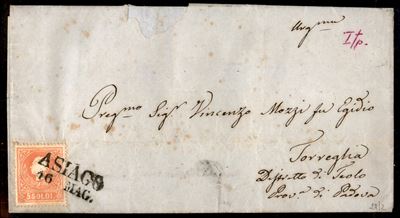 Urg.mo
I tp.
Preg.mo Sig.r Vincenzo Mozzi fu Egidio
Torreglia
Distretto di Teolo
Prov.a di Padova
ASIAGO
16
MAG.
5 SOLDI